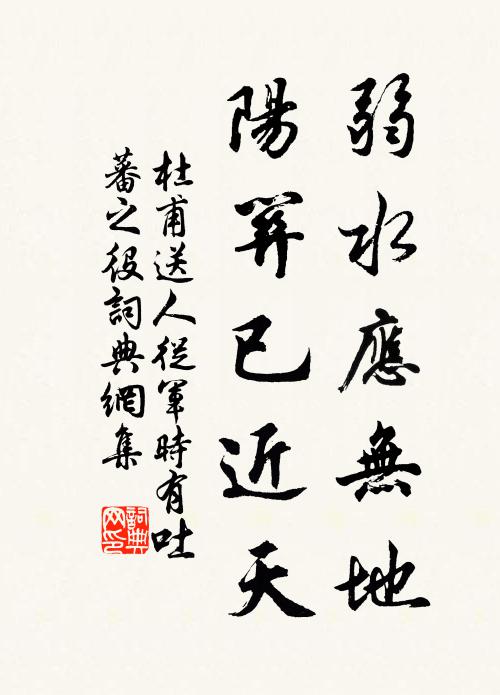 弱水應無地
陽關已近天
杜甫送人從軍時有吐
蕃之役詞典網集
詞典
网印